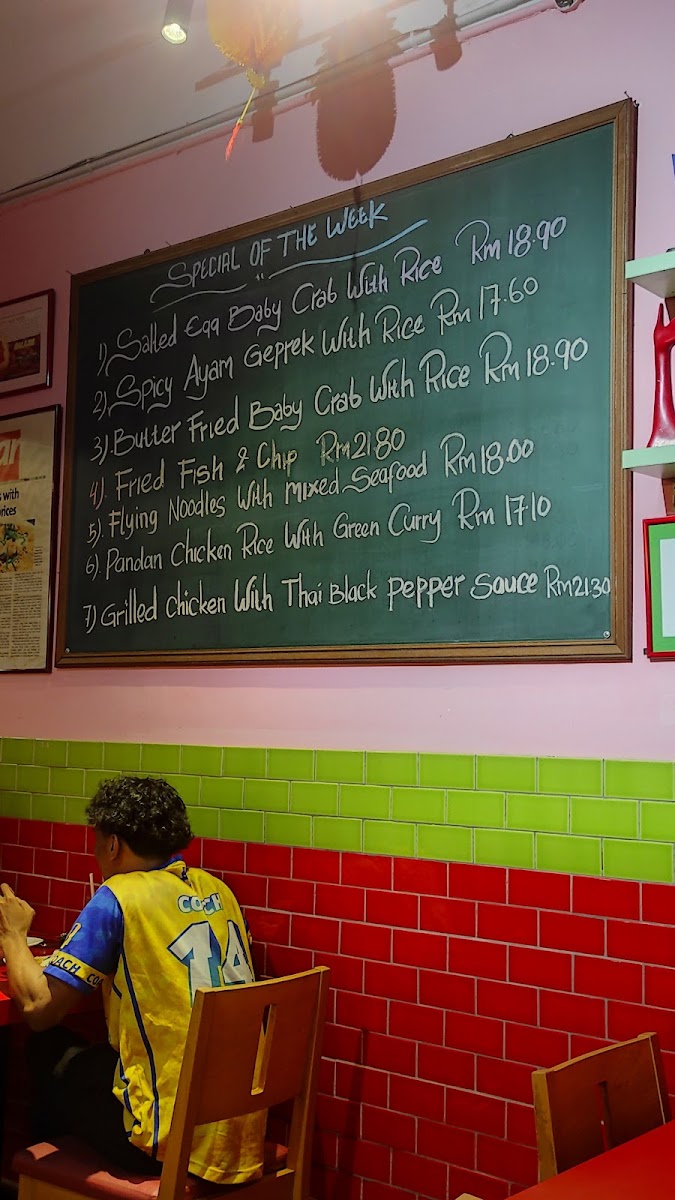 SPECIAL OF THE WEEK
1). Salted Egg Baby Crab With Rice Rm 18.90
2). Spicy Ayam Geprek With Rice Rm 17.60
3). Butter Fried Baby Crab With Rice Rm 18.90
4). Fried Fish & Chip Rm 21.80
5). Flying Noodles With Mixed Seafood Rm 18.00
6). Pandan Chicken Rice With Green Curry Rm 17.10
7) Grilled Chicken With Thai Black Pepper Sauce Rm 21.30
with
COACH
14